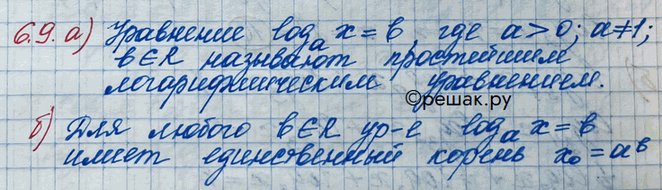 6.9. а) Уравнение logₐ x = b, где a > 0; a ≠ 1;
b ∈ R называют простейшим
логарифмическим уравнением.
©решак.ру
б) Для любого b ∈ R ур-е logₐ x = b
имеет единственный корень x₀ = aᵇ